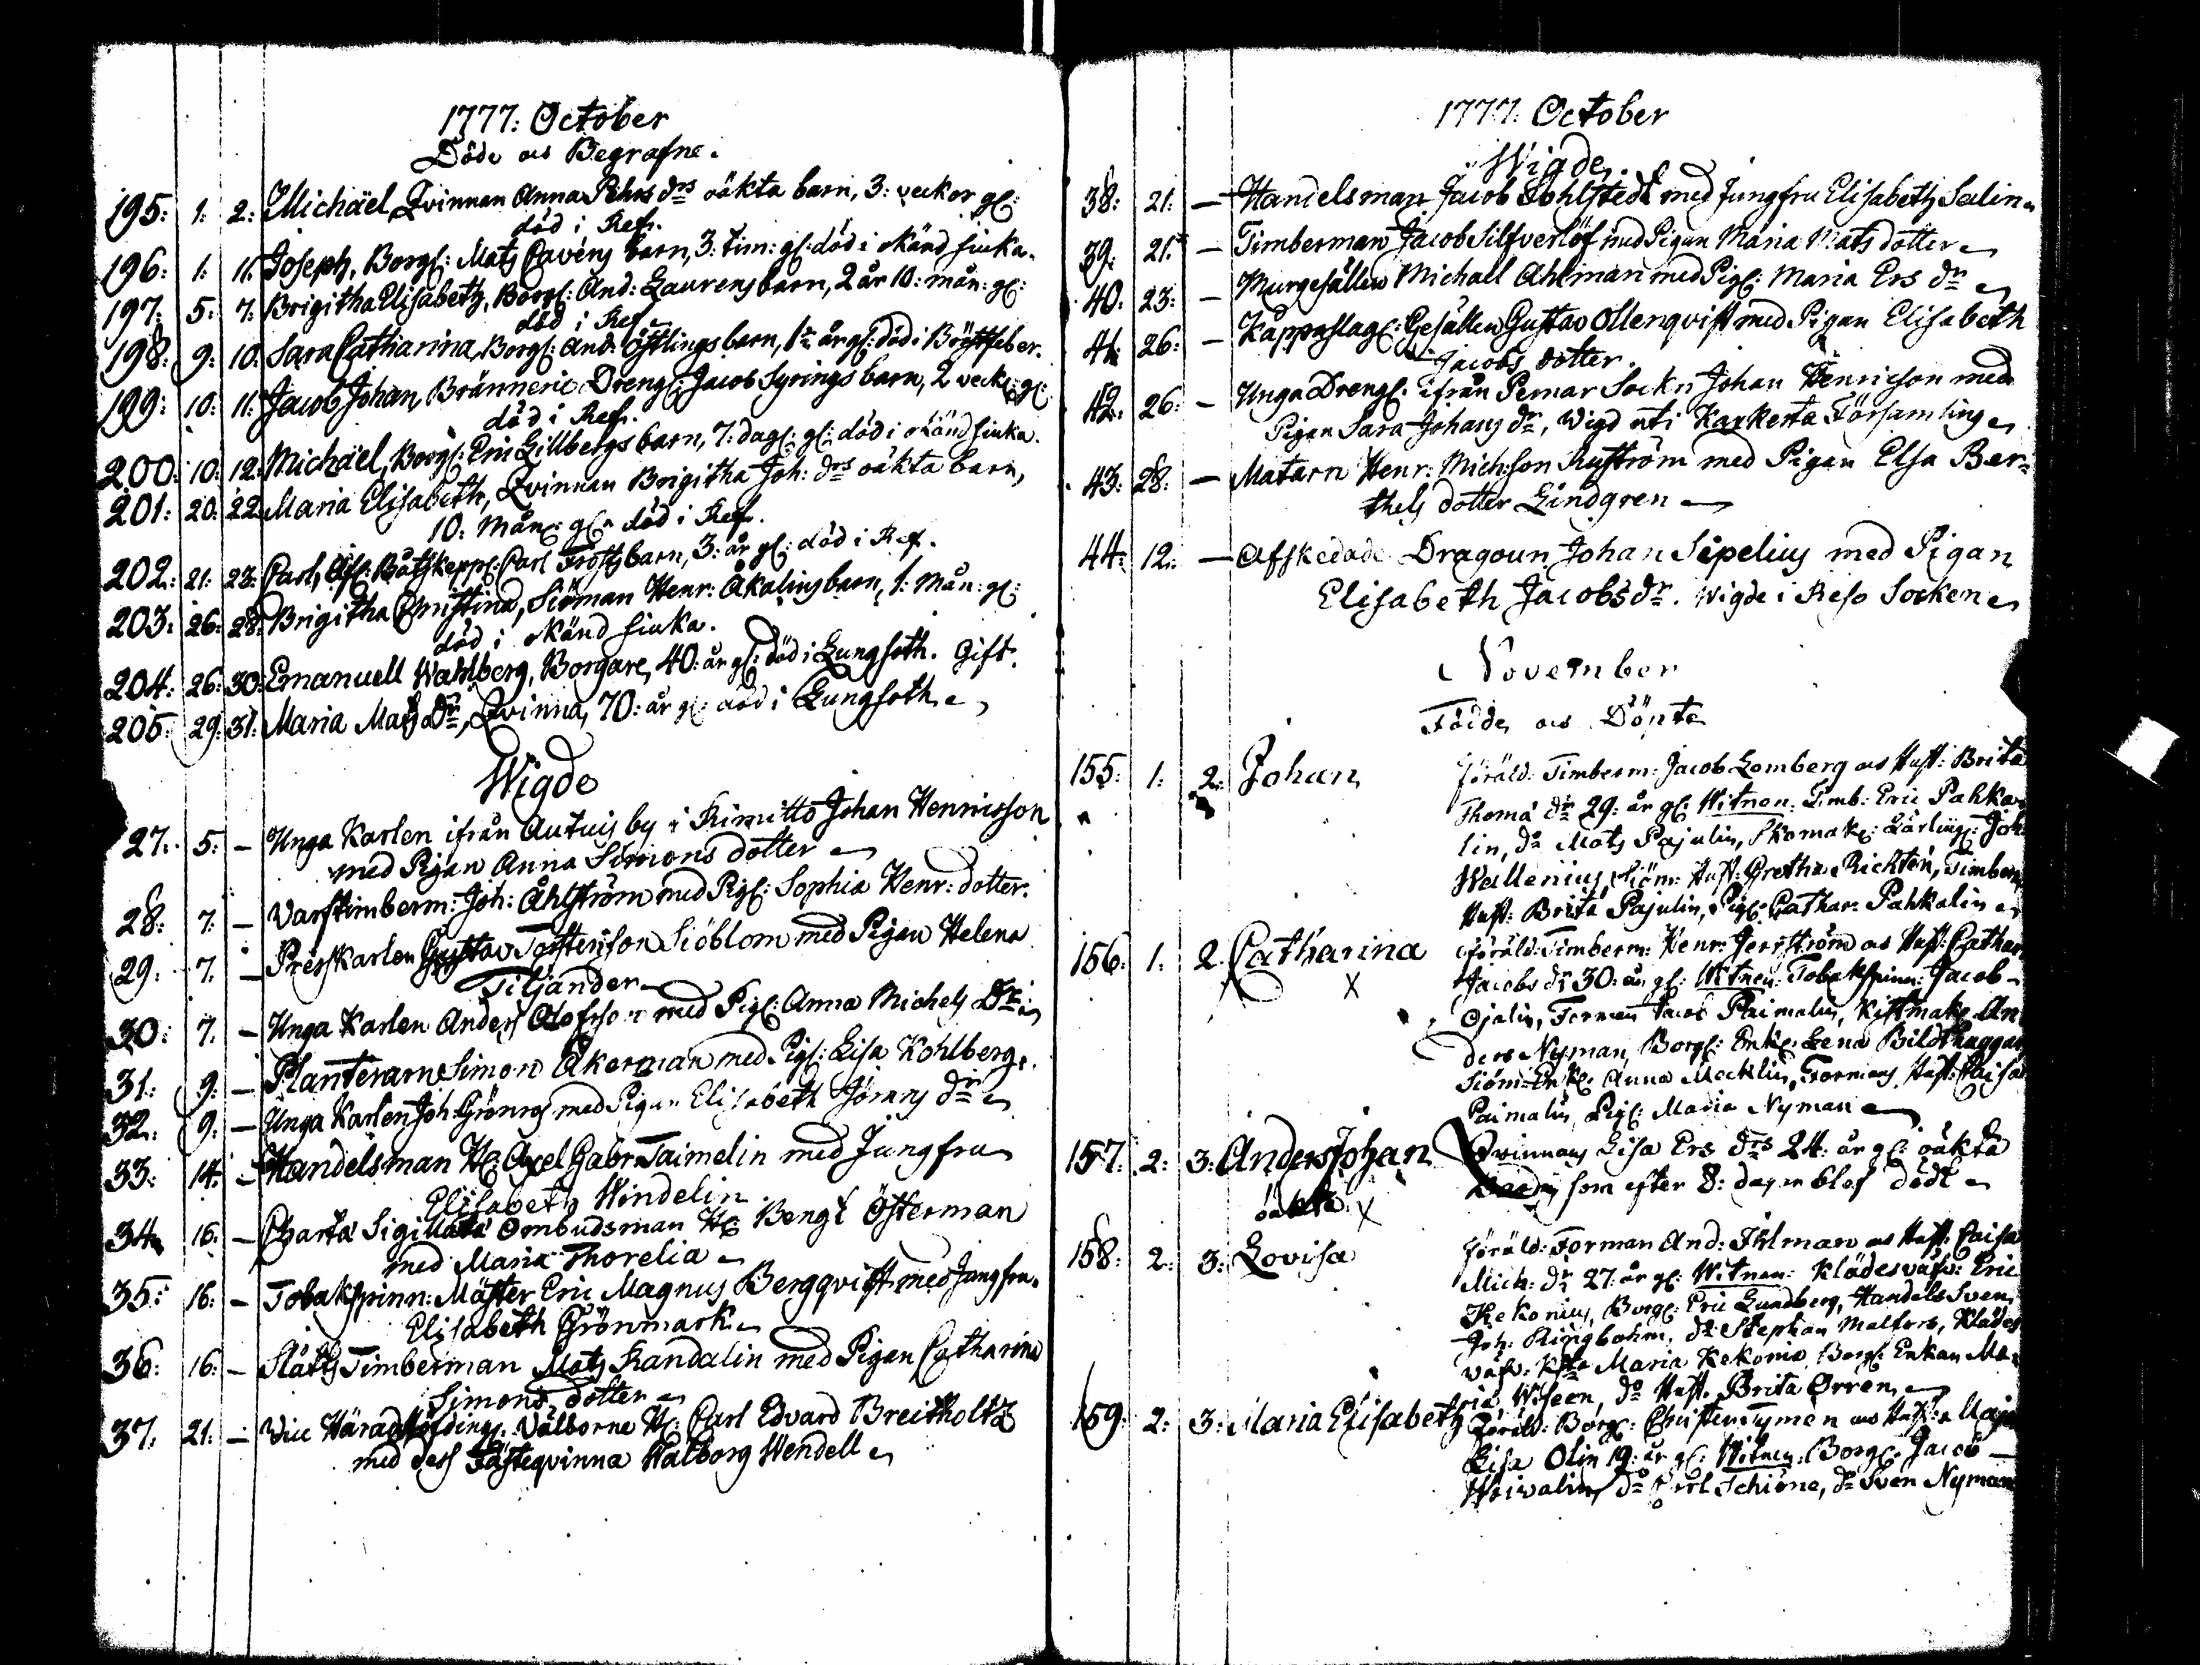 1777: October
Döde och Begrafne.
195: 1: 2: Michaël, Qvinnan Anna Pehrs drs oäkta barn, 3: veckor gl:
död i Ref.
196: 1: 11. Joseph, Borgl: Mats Cavéns barn, 3: tim: gl: död i okänd siuka.
197: 5: 7: Brigitha Elisabeth, Borgl: And: Laurens barn, 2 år 10: mån: gl:
död i Ref.
198: 9: 10: Sara Catharina, Borgl: And: Östlings barn, år gl: död i Bröstfeber.
199: 10: 11: Jacob Johan, Bränneri Drengl: Jacob Syrings barn, 2 veck: gl:
död i Ref.
200: 10: 12: Michaël, Borgl: Eric Gillbergs barn, 7: dagl: gl: död i okänd siuka.
201: 20: 22: Maria Elisabeth, Qvinnan Brigitha Joh: drs oäkta barn,
10: Mån: gl: död i Ref.
202: 21: 23: Carl, Båtskepp: Carl Frosts barn, 3: år gl: död i Ref.
203: 26: 28: Brigitha Christina, Siöman Henr: Åkalins barn, 1: Mån: gl:
död i okänd siuka.
204: 26: 30: Emanuell Wahlberg, Borgare, 40: år gl: död i Lungsoth. Gift.
205: 29: 31: Maria Mats dr, Qvinna, 70: år gl: död i Lungsoth
Wigde
27: 5: – Unga Karlen ifrån Autuis by i Kimitto Johan Henricsson
med Pigan Anna Simons dotter
28: 7: – Varfstimberm: Joh: Åhlström med Pigl: Sophia Henr: dotter.
29: 7. – Presskarlen Gustav Torstensson Siöblom med Pigan Helena
Tiljander
30: 7. – Unga Karlen Anders Olofsson med Pigl: Anna Michels Dr
31: 9: – Planteraren Simon Åkerman med Pigl: Lisa Kohlberg.
32: 9: – Unga Karlen Joh: Grönros med Pigan Elisabeth Jörans dr
33: 14: – Handelsman H: Axel Gabr: Taimelin med Jungfru
Elisabeth Windelin
34: 16: – Charta Sigillata Ombudsman H: Bengt Österman
med Maria Thorelia
35: 16: – Tobakspinn: Mäster Eric Magnus Bergqvist med Jungfru
Elisabeth Grönmark
36: 16: – Slåtts Timberman Mats Kandalin med Pigan Catharina
Simons dotter
37: 21: – Vice Häradshöfdingl: Välborne H: Carl Edvard Breitholtz
med dess Fästeqvinna Walborg Wendell
1777: October
Wigde.
38: 21: – Handelsman Jacob Kohlstedt med Jungfru Elisabeth Salin
39: 21: – Timberman Jacob Silfverlöf med Pigan Maria Mats dotter
40: 23: – Murgesällen Michaël Ahlman med Pigl: Maria Ers dr
41: 26: – Kopparslagl: Gesällen Gustav Ollenqvist med Pigan Elisabeth
Jacobs dotter.
42: 26: – Unga Drengl: ifrån Pemar Sockn Johan Henricson med
Pigan Sara Johans dr, Wigd uti Karkerta Församling
43: 28: – Matarn Henr: Mich:son Ryström med Pigan Elsa Ber=
thels dotter Lindgren
44: 12: – Afskedade Dragoun Johan Sipelius med Pigan
Elisabeth Jacobs dr. Wigde i Reso Socken
November
Födde och Döpte
155: 1: 2: Johan föräld: Timberm: Jacob Lomberg och Hust: Brita
Thoma dr 29: år gl: Witnen: Timb: Eric Pahka
lin, do Mats Pajulin, Skomak: Lärlingl: Joh:
Wallenius, Siöm: Hust: Gretha Richtén, Timberm:
Hust: Brita Pajulin, Pigl: Cathar: Pahkalin
156: 1: 2 Catharina föräld: Timberm: Henr: Jerfström och Hust: Cathar:
X X Jacobs dr 30: år gl: Witnen: Tobakspinn: Jacob
Ojalin, Forman Jacob Paimalin, Kistmak: An
ders Nyman, Borgl: Enk: Lena Bildthuggar
Siöm: Enk: Anna Mecklin, Formans Hust: Caisa
Paimalin, Pigl: Maria Nyman
157: 2: 3: Anders Johan Qvinnans Lisa Ers drs 24: år gl: oäkta
oäkta. X som efter 8: dagar blef död
158: 2: 3: Lovisa föräld: Forman And: Ihlman och Hust: Caisa
Mich: dr 27: år gl: Witnen: Klädesväfv: Eric
Kekonius, Borgl: Eric Lundberg, Handels Sven
Joh: Ringbohm, do Stephan Malfors, Klädes
väfv: Maria Kekoma, Borgl: Enkan Ma
ria Wiseen, do Hust: Brita Orren
159: 2: 3: Maria Elisabeth föräld: Borgl: Christer Tymen och Hust: Maja
Lisa Olin 19: år gl: Witnen: Borgl: Jacob
Woivalin, do Carl Schiöne, do Sven Nyman